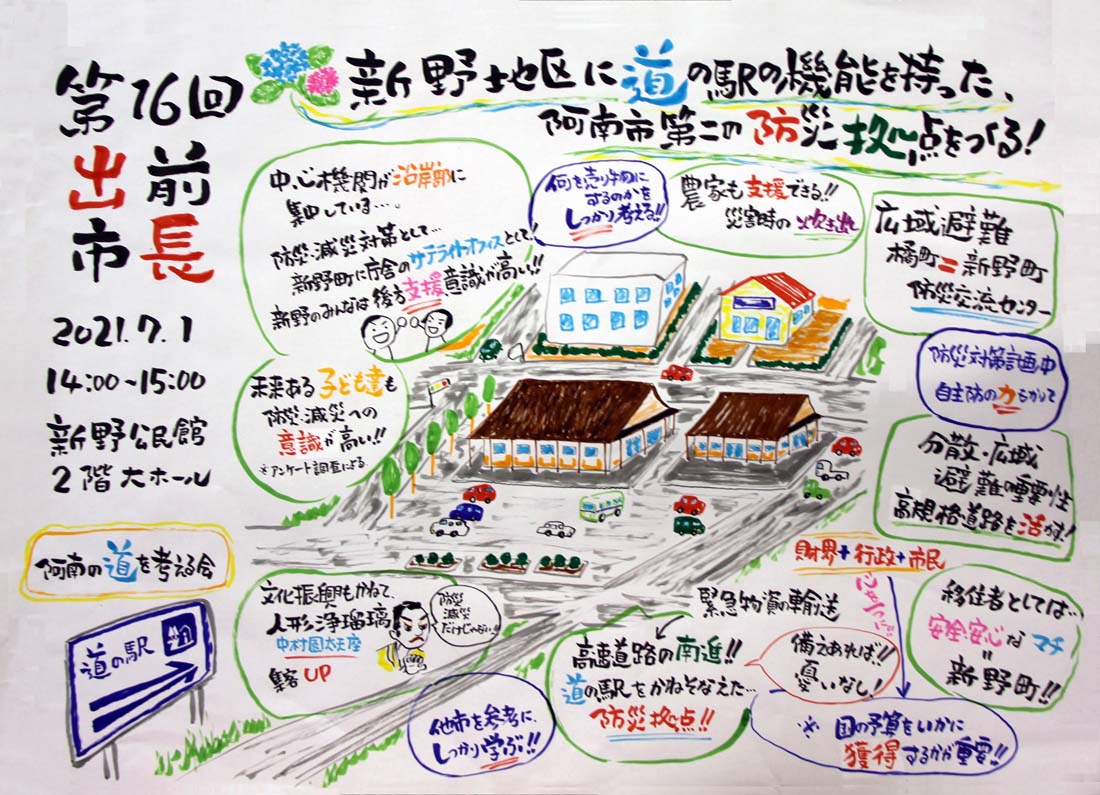 第16回
出前
市長
2021.7.1
14:00~15:00
新野公民館
2階大ホール
新野地区に道の駅の機能を持った、
阿南市第二の防災拠点をつくる!
中心機関が沿岸部に
集中している…。
防災・減災対策として…
新野町に庁舎のサテライトオフィスとして!
新野のみんなは後方支援意識が高い!!
何を売り物に
するのかを
しっかり考える!!
農家も支援できる!!
災害時の炊き出し
広域避難
橘町=新野町
防災交流センター
防災対策計画中
自主防の力もかりて
未来ある子ども達も
防災・減災への
意識が高い!!
※アンケート調査による
分散・広域
避難の重要性
高規格道路を活かす!
阿南の道を考える会
道の駅
文化振興もかねて、
人形浄瑠璃
中村園太夫座
集客UP
防災
減災
だけじゃない!!
他市を参考に、
しっかり学ぶ!!
緊急物資の輸送
高速道路の南進!!
道の駅をかねそなえた…
防災拠点!!
備えあれば!!
憂いなし!
財界+行政+市民
※ 国の予算をいかに
獲得するかが重要!!
移住者としては…
安全安心なマチ
=
新野町!!